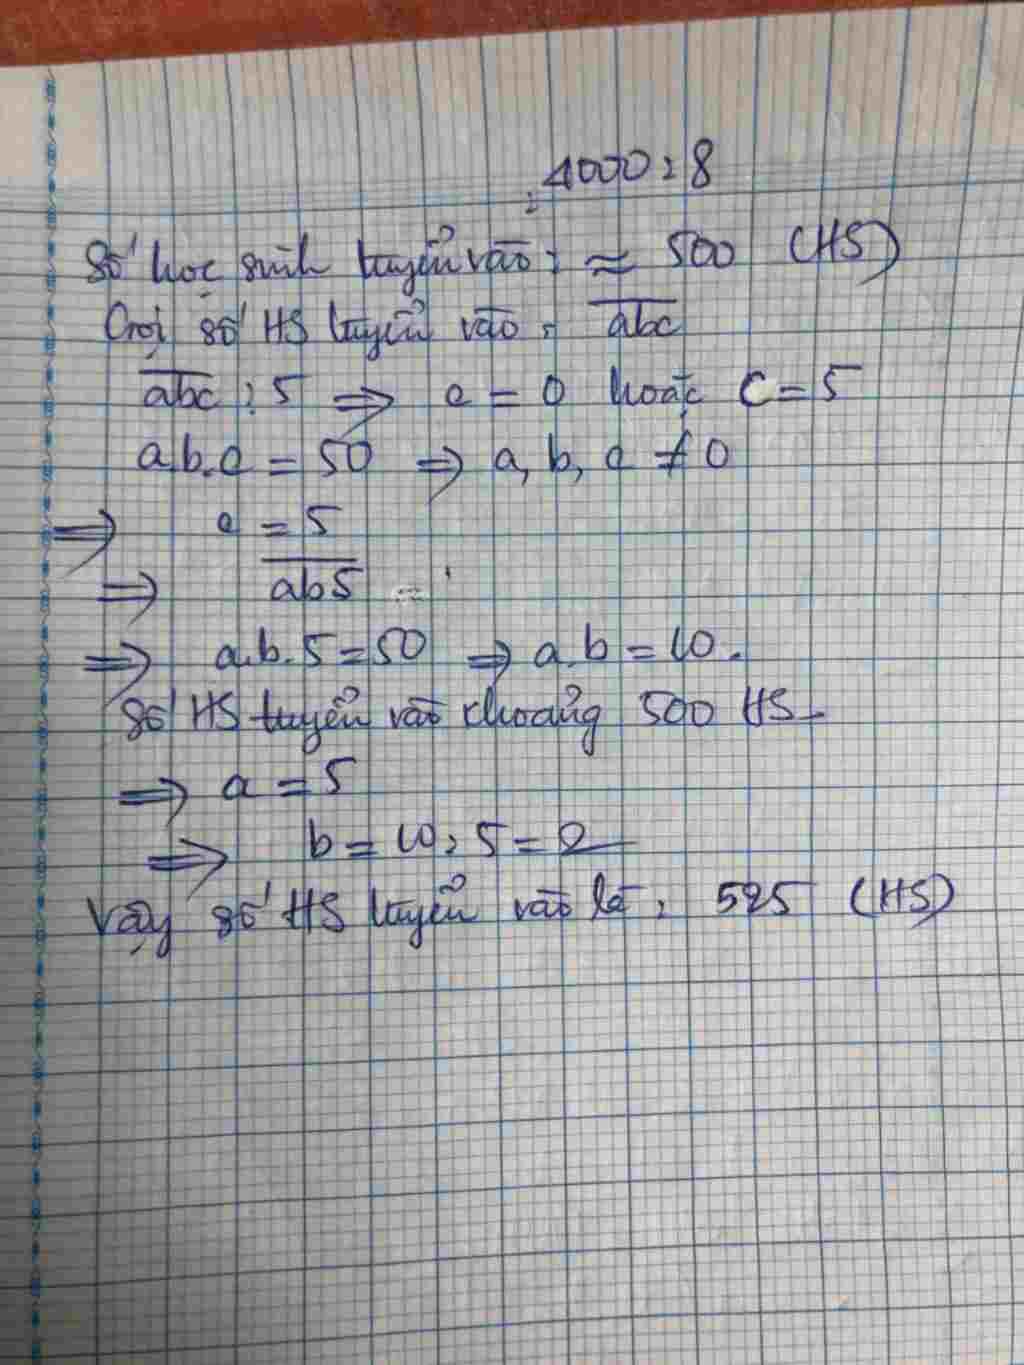 4000 : 8
Số học sinh tuyển vào : ≈ 500 (HS)
Gọi số HS tuyển vào : \overline{abc}
\overline{abc} ⋮ 5 ⇒ c = 0 hoặc c = 5
a.b.c = 50 ⇒ a, b, c ≠ 0
⇒ c = 5
⇒ \overline{ab5}
⇒ a.b.5 = 50 ⇒ a.b = 10.
Số HS tuyển vào khoảng 500 HS
⇒ a = 5
⇒ b = 10 : 5 = 2
Vậy số HS tuyển vào là : 525 (HS)